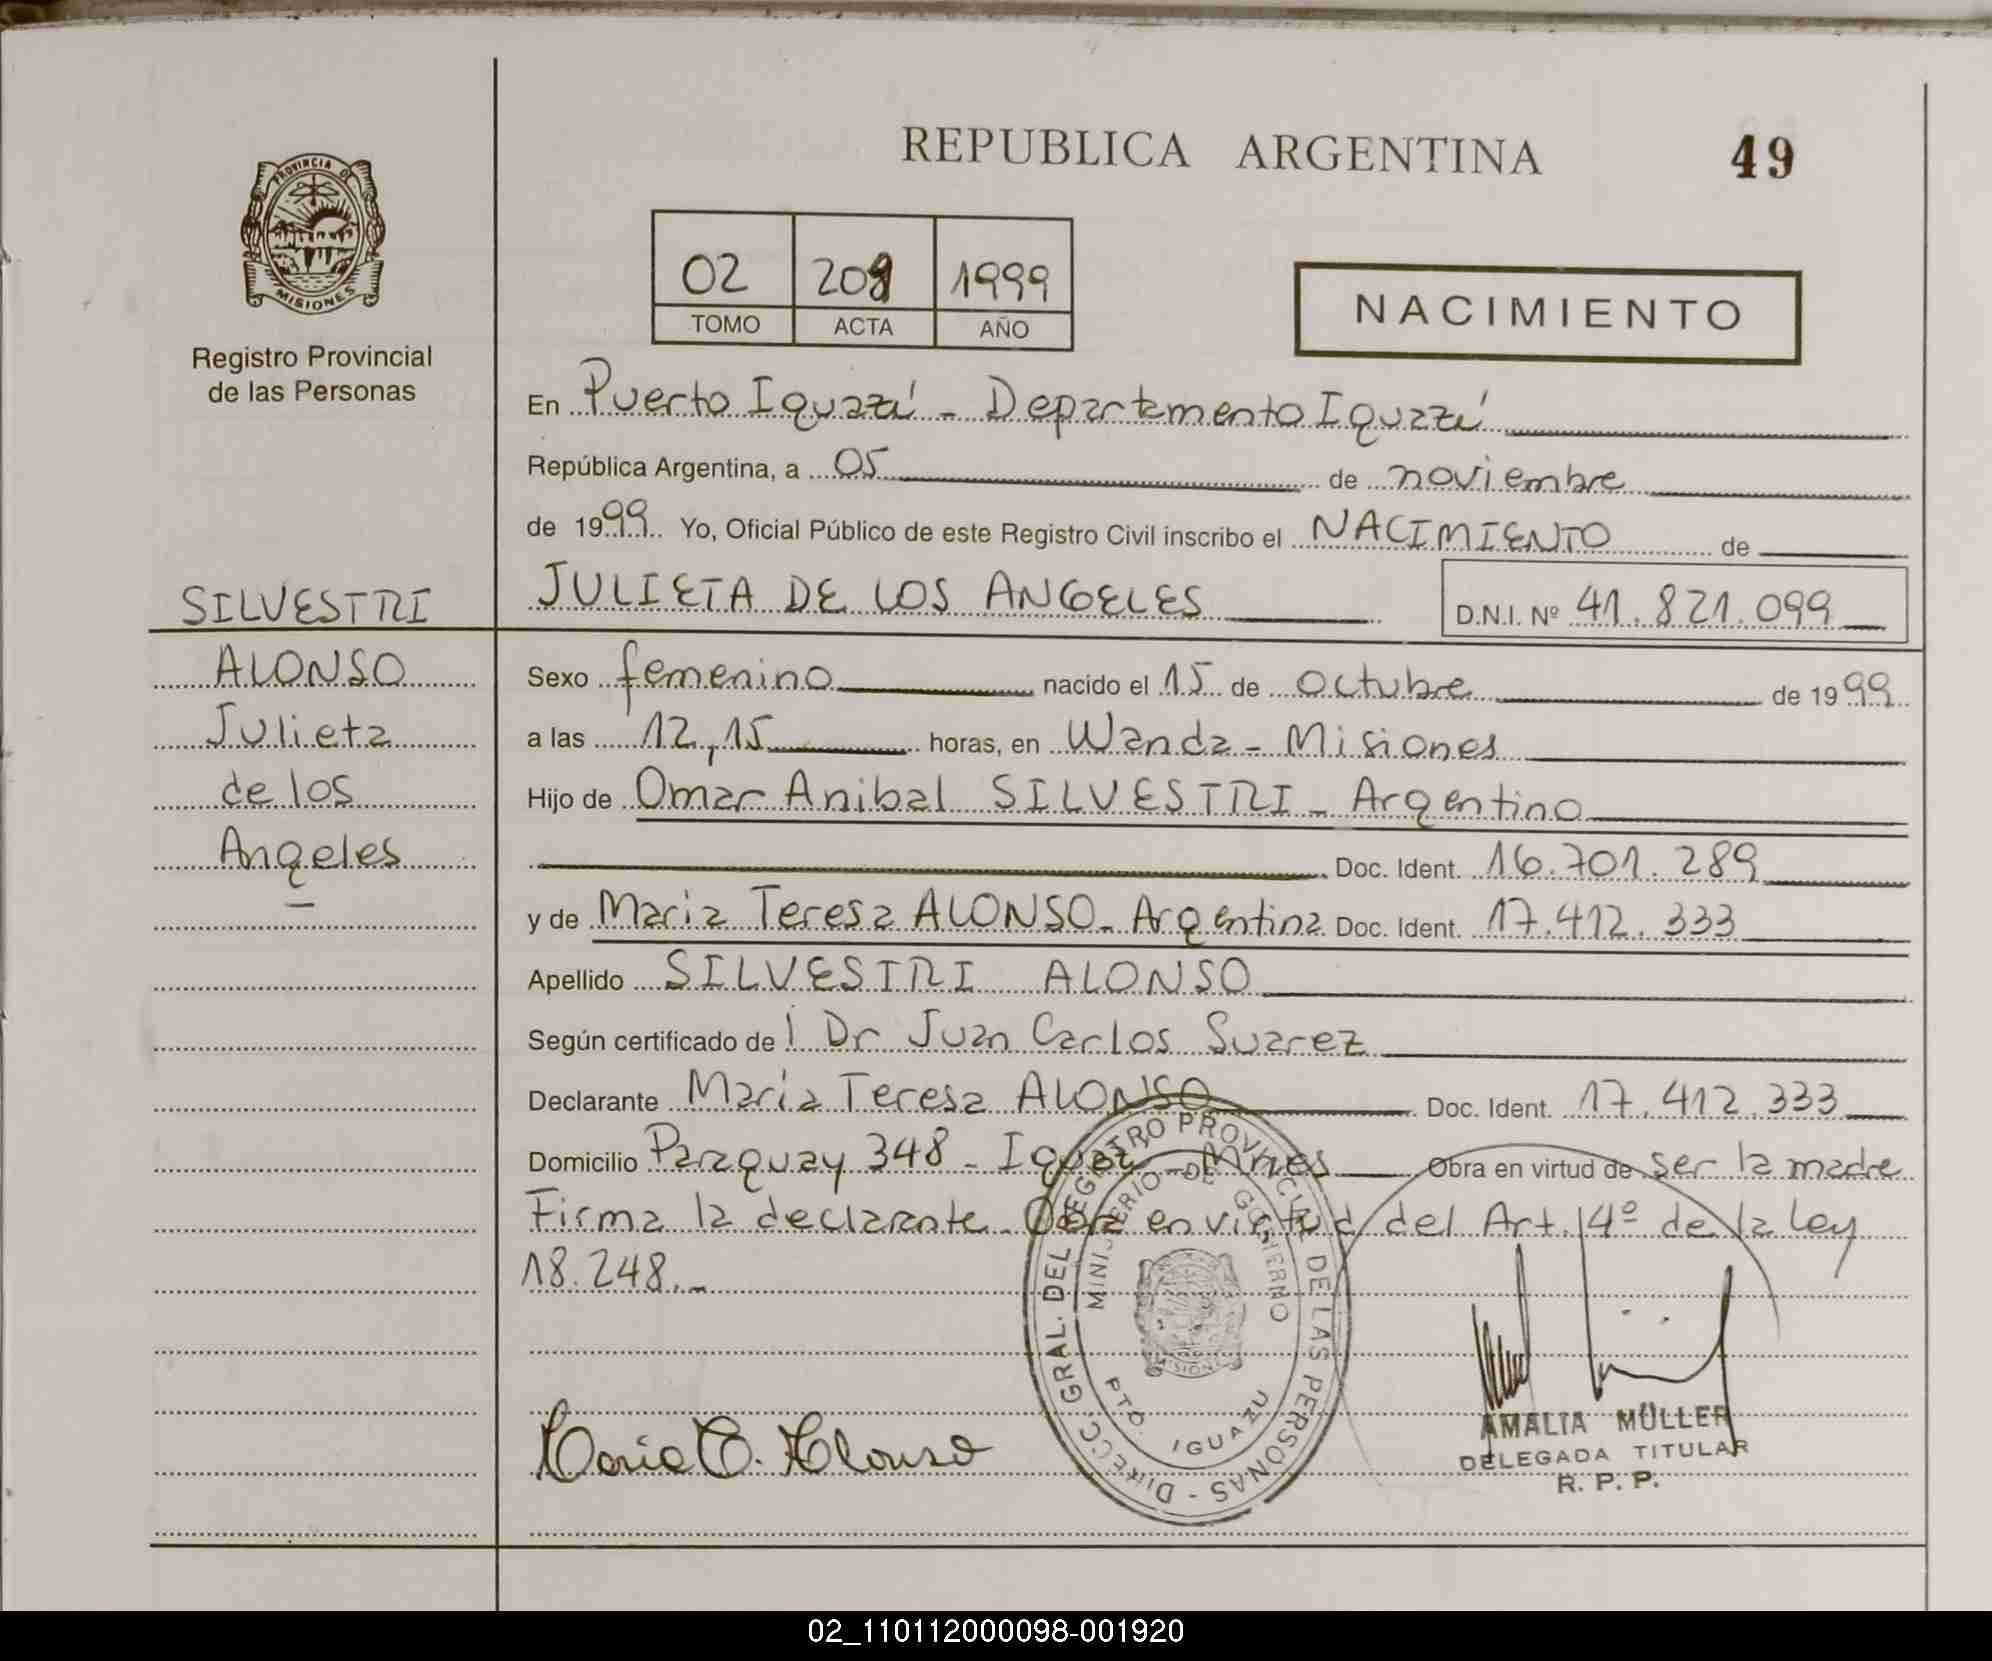 REPUBLICA ARGENTINA
49
PROVINCIA DE
MISIONES
Registro Provincial
de las Personas
02 1999
TOMO ACTA AÑO
NACIMIENTO
En Puerto Iguazú - Departamento Iguazú
República Argentina, a 05 de noviembre
de 1999 Yo, Oficial Público de este Registro Civil inscribo el NACIMIENTO de
JULIETA DE LOS ANGELES D.N.I. Nº 41.821.099
SILVESTRI
ALONSO
Julieta
de los
Angeles
Sexo femenino nacido el 15 de octubre de 1999
a las 12,15 horas, en Wanda - Misiones
Hijo de Omar Anibal SILVESTRI - Argentino
Doc. Ident. 16.701.289
y de Maria Teresa ALONSO - Argentina Doc. Ident. 17.412.333
Apellido SILVESTRI ALONSO
Según certificado de l Dr Juan Carlos Suarez
Declarante Maria Teresa ALONSO Doc. Ident. 17.412.333
Domicilio Paraguay 348 - Mnes Obra en virtud de ser la madre
Firma la declarante. Obra en virtud del Art. 4º de la Ley
18.248.-
DIRECC. GRAL. DEL REGISTRO PROVINCIAL DE LAS PERSONAS -
MINISTERIO DE GOBIERNO
MISIONES
PTO. IGUAZU
Maria T. Alonso
AMALIA MÜLLER
DELEGADA TITULAR
R. P. P.
02_110112000098-001920